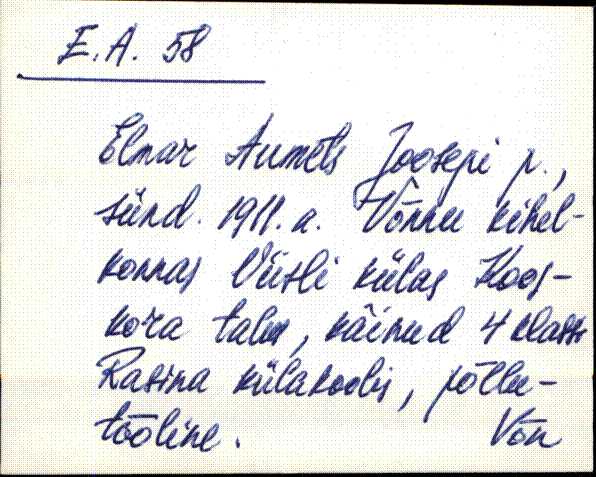 E.A. 58
Elmar Aumets Joosepi p.,
sünd. 1911. a. Võnnu kihel-
konnas Viisli külas Koos-
kora talus, käinud 4 klassi
Rasina külakoolis, põllu-
tööline. Võn